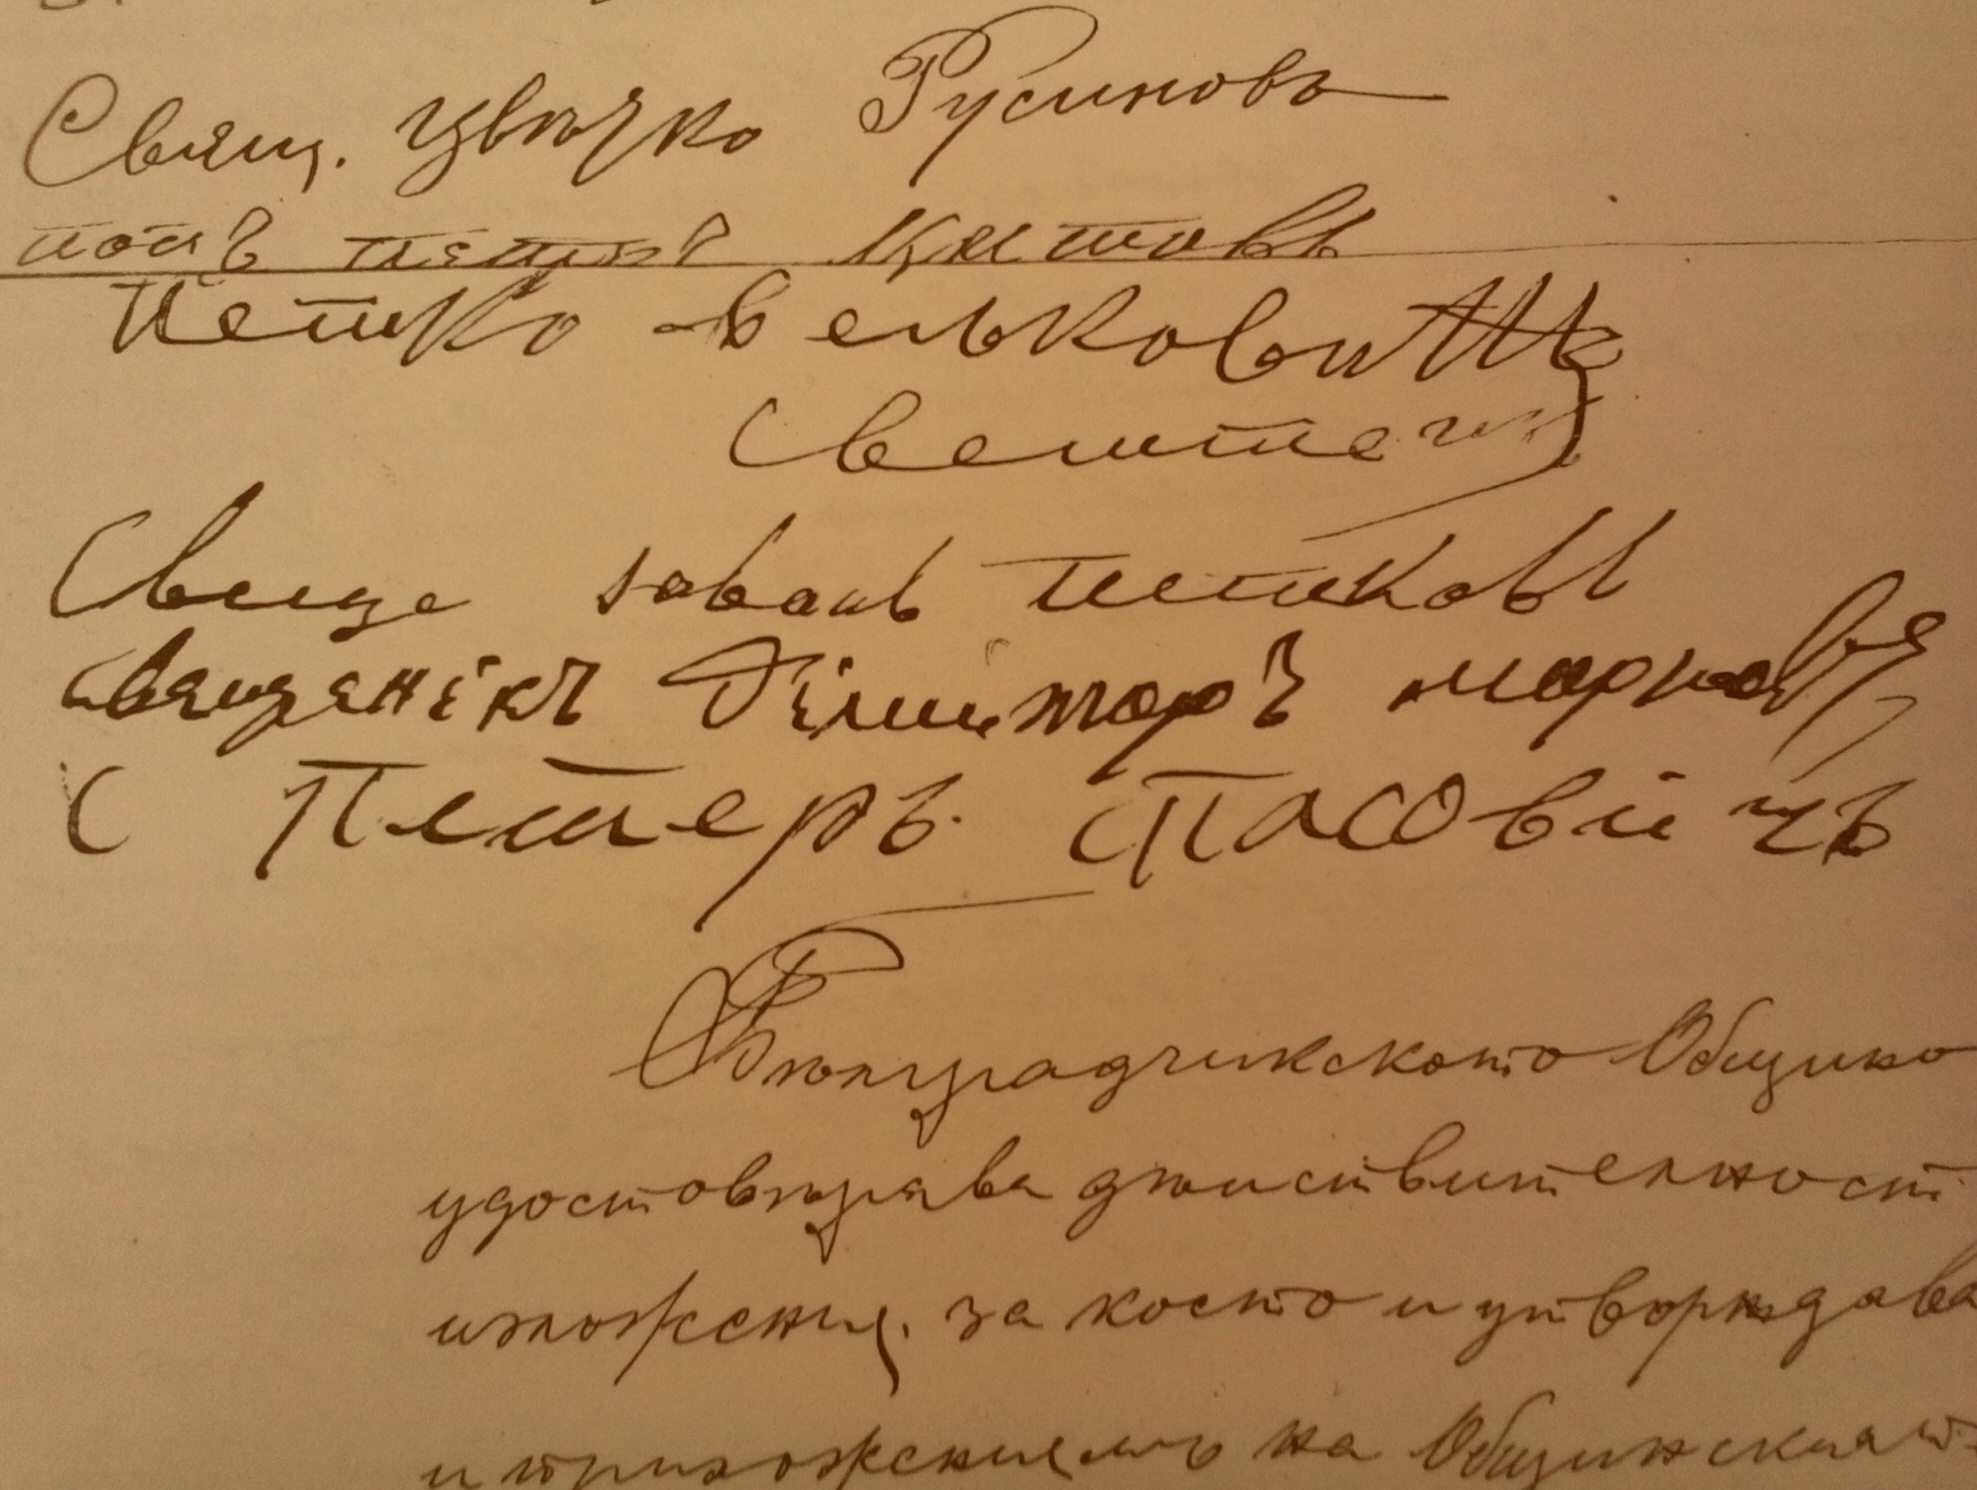 Свящ. Цвѣтко Русиновъ
попъ петко Цветовъ
Петко Вельковичъ
Свештен
Свеще Iованъ петковъ
священікъ Дімитаръ марков
С Петеръ Тасовичъ
Бѣлградчикското Общинско
удостовѣрява дѣйствителност
изложения, за което и утвърждава
и приложениемъ на Общинския